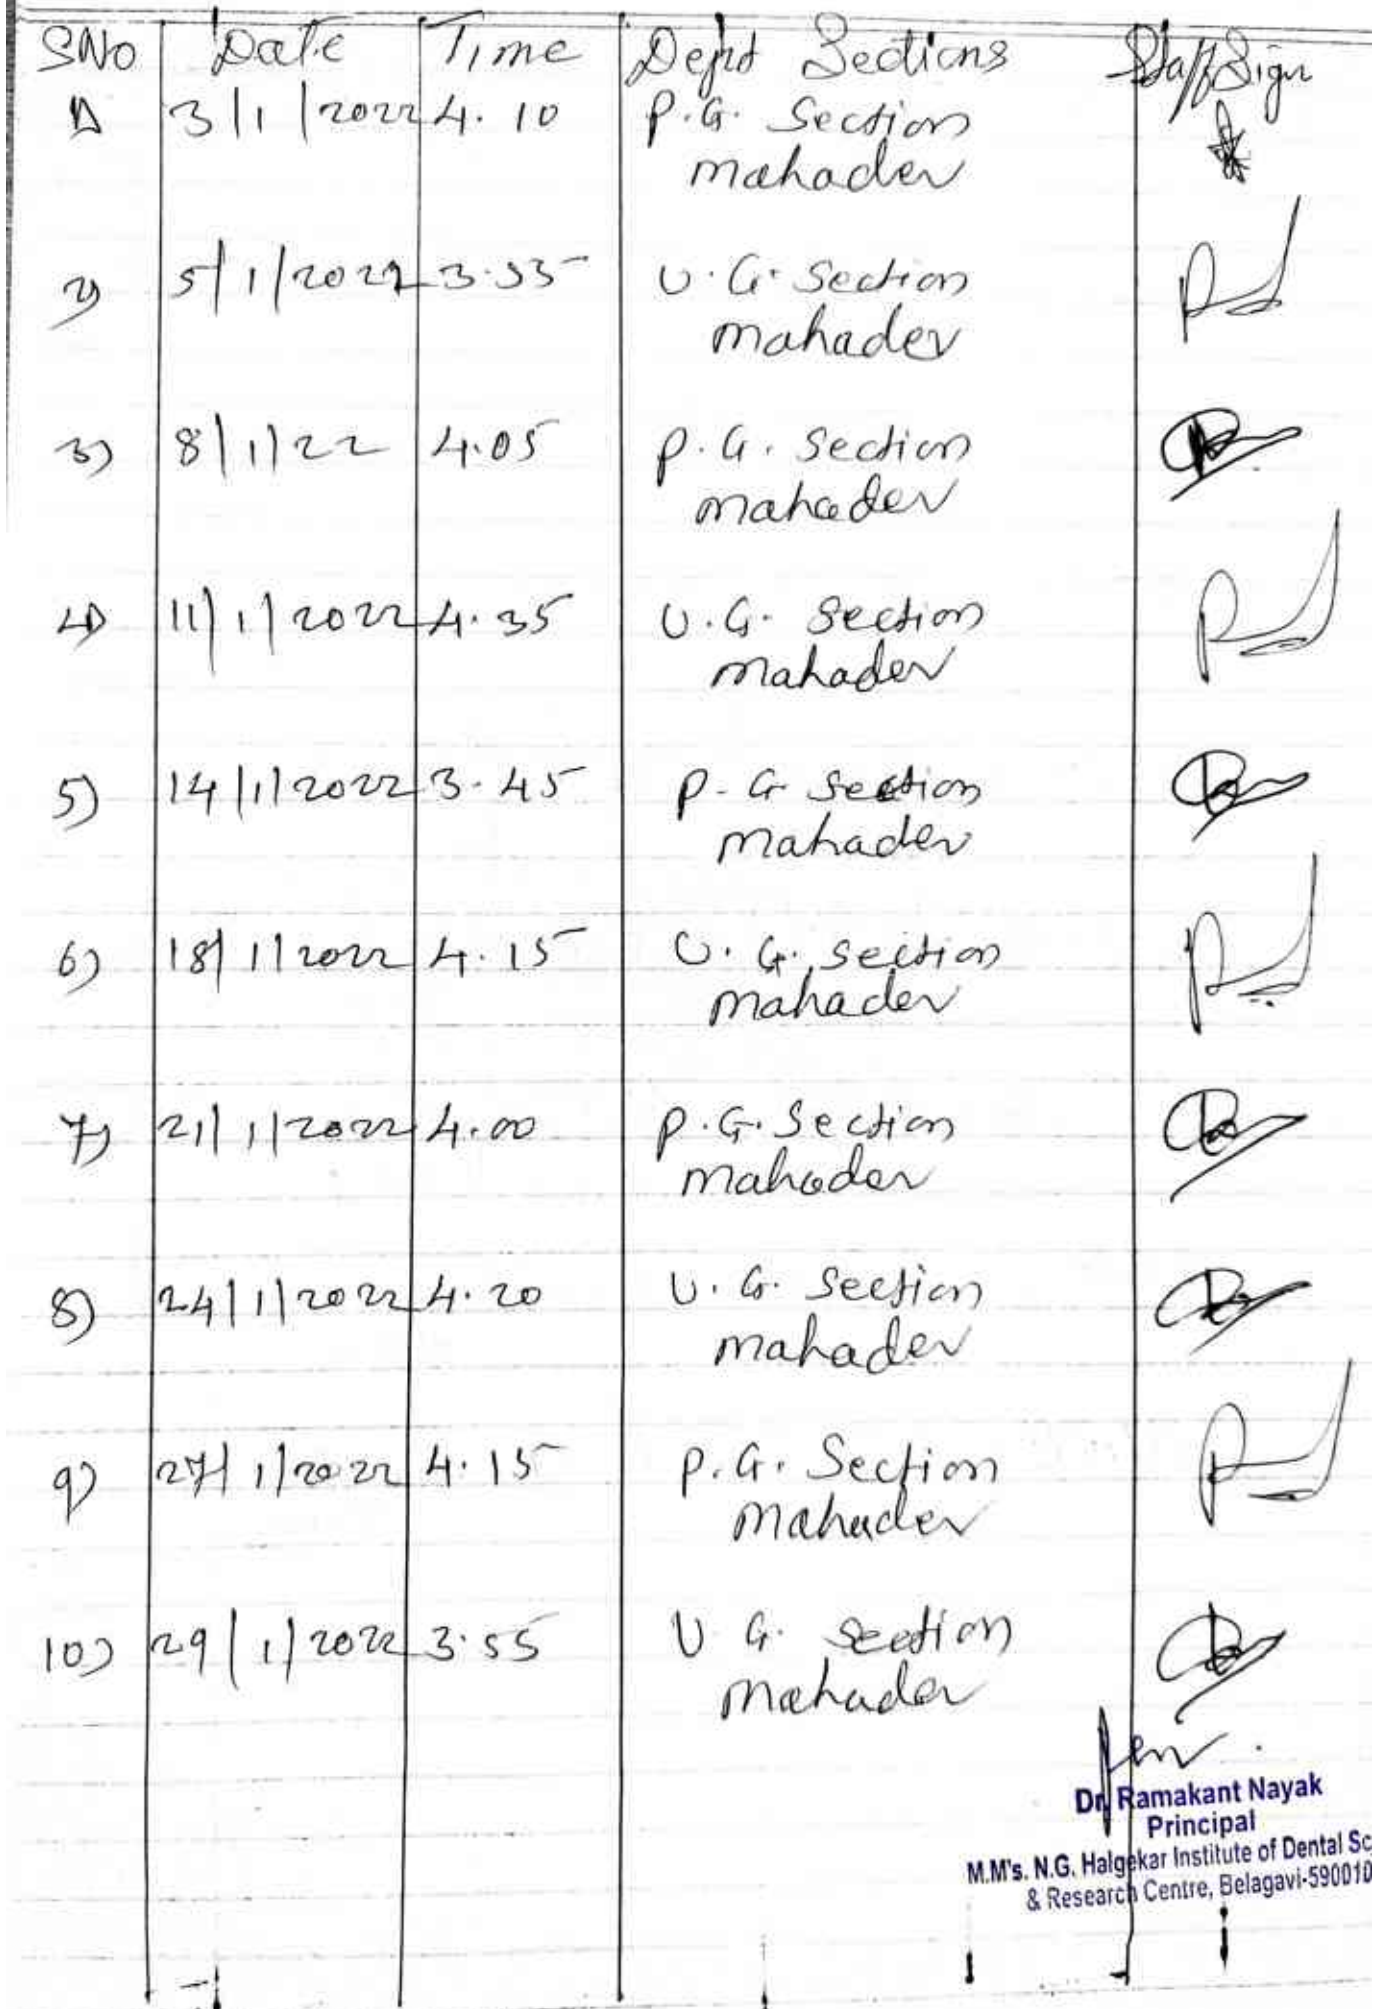 SNo Date Time Dept Sections Staff Sign
1) 3/1/2022 4.10 P.G. Section
mahadev
2) 5/1/2022 3.55 U.G. Section
mahadev
3) 8/1/22 4.05 P.G. Section
mahadev
4) 11/1/2022 4.35 U.G. Section
mahadev
5) 14/1/2022 3.45 P.G. Section
mahadev
6) 18/1/2022 4.15 U.G. Section
mahadev
7) 21/1/2022 4.00 P.G. Section
mahadev
8) 24/1/2022 4.20 U.G. Section
mahadev
9) 27/1/2022 4.15 P.G. Section
mahadev
10) 29/1/2022 3.55 U.G. Section
mahadev
Dr. Ramakant Nayak
Principal
M.M's. N.G. Halgekar Institute of Dental Sc
& Research Centre, Belagavi-590010